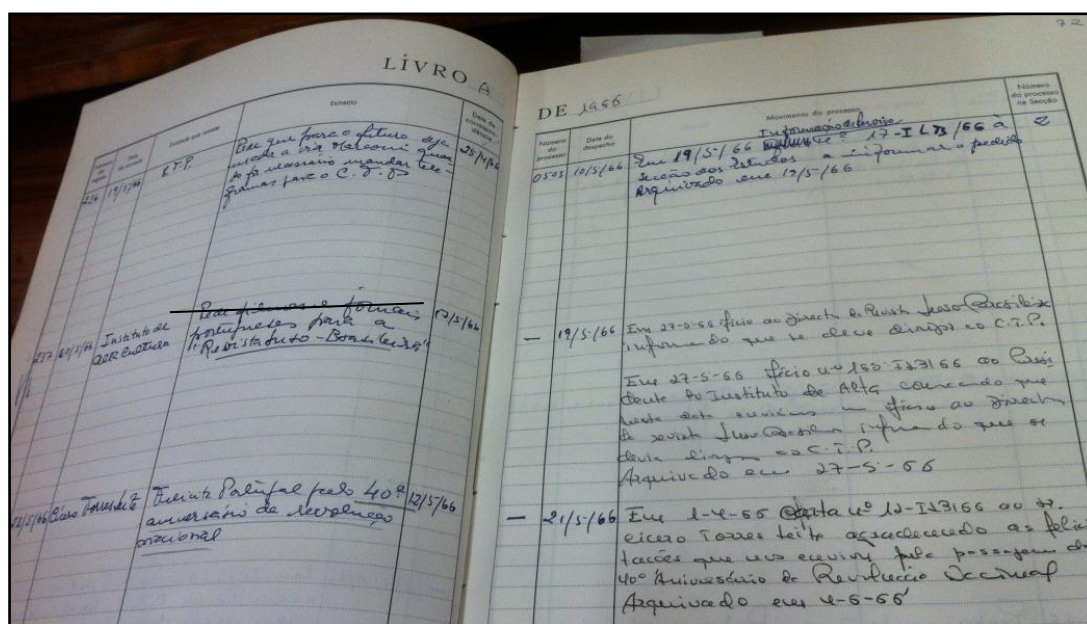 72
LIVRO A
Extracto
254 19/5/66 C.T.P. Pede que para o futuro seja
usada a via Marconi quan-
do fôr necessário mandar tele-
gramas para o C.T.P. 25/4/66
257 20/5/66 Instituto de Alta Cultura
Pede filmes e jornais
portugueses para a
"Revista Luso-Brasileira" 17/5/66
Cicero Torres Leite
Felicita Portugal pelo 40º 12/5/66
aniversário da revolução
nacional
DE 1966
Número do processo
Data do despacho
Movimento do processo
Número do processo na Secção
0503 10/5/66 Em 19/5/66 17-ILB/66 a
Secção dos Estudos a informar o pedido
Arquivado em 19/5/66
2
— 19/5/66 Em 27-5-66 ofício ao Director da Revista Luso-Brasileira
informando que se deve dirigir ao C.T.P.
Em 27-5-66 ofício nº ao Presi-
dente do Instituto de Alta comunicando que
nesta data enviamos um ofício ao Director
da revista Luso-Brasileira informando que se
devia dirigir ao C.T.P.
Arquivado em 27-5-66
— 21/5/66 Em 1-4-66 Carta nº ao Sr.
Cicero Torres Leite agradecendo as felici-
tações que nos enviou pela passagem do
40º Aniversário da Revolução Nacional
Arquivado em 4-6-66